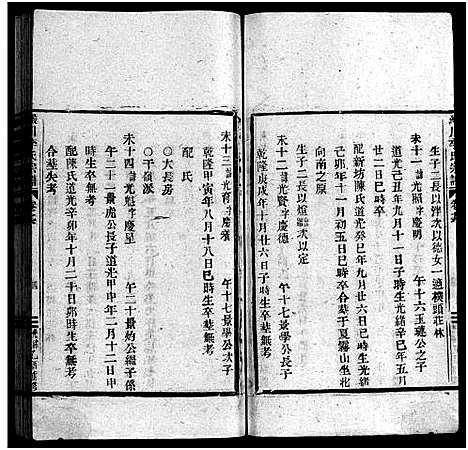 生子二長以泮次以德女一適横頭莊林
未十一諱光照字慶明　午十六玉公之子
道光己丑年九月十一日子時生光緒辛巳年五月
配新坊陳氏道光癸巳年九月廿六日巳時生光緒
己卯年十一月初五日巳時卒合葬于夏霧山坐北
向南之原
生子二長以煊次以定
未十二諱光賢字慶德　午十七景學公長子
乾隆庚戌年十月廿六日子時生卒葬無考
未十三諱光育字慶　午十七景學公次子
乾隆甲寅年八月十八日巳時生卒葬無考
配氏
○大長房
○干嶺派
未十四諱光魁字慶星　午二十景灼公繼子係
午二十一景虎公長子道光甲申年二月十二日申
時生卒葬無考
配陳氏道光辛卯年十月二十日卯時生卒
合葬失考